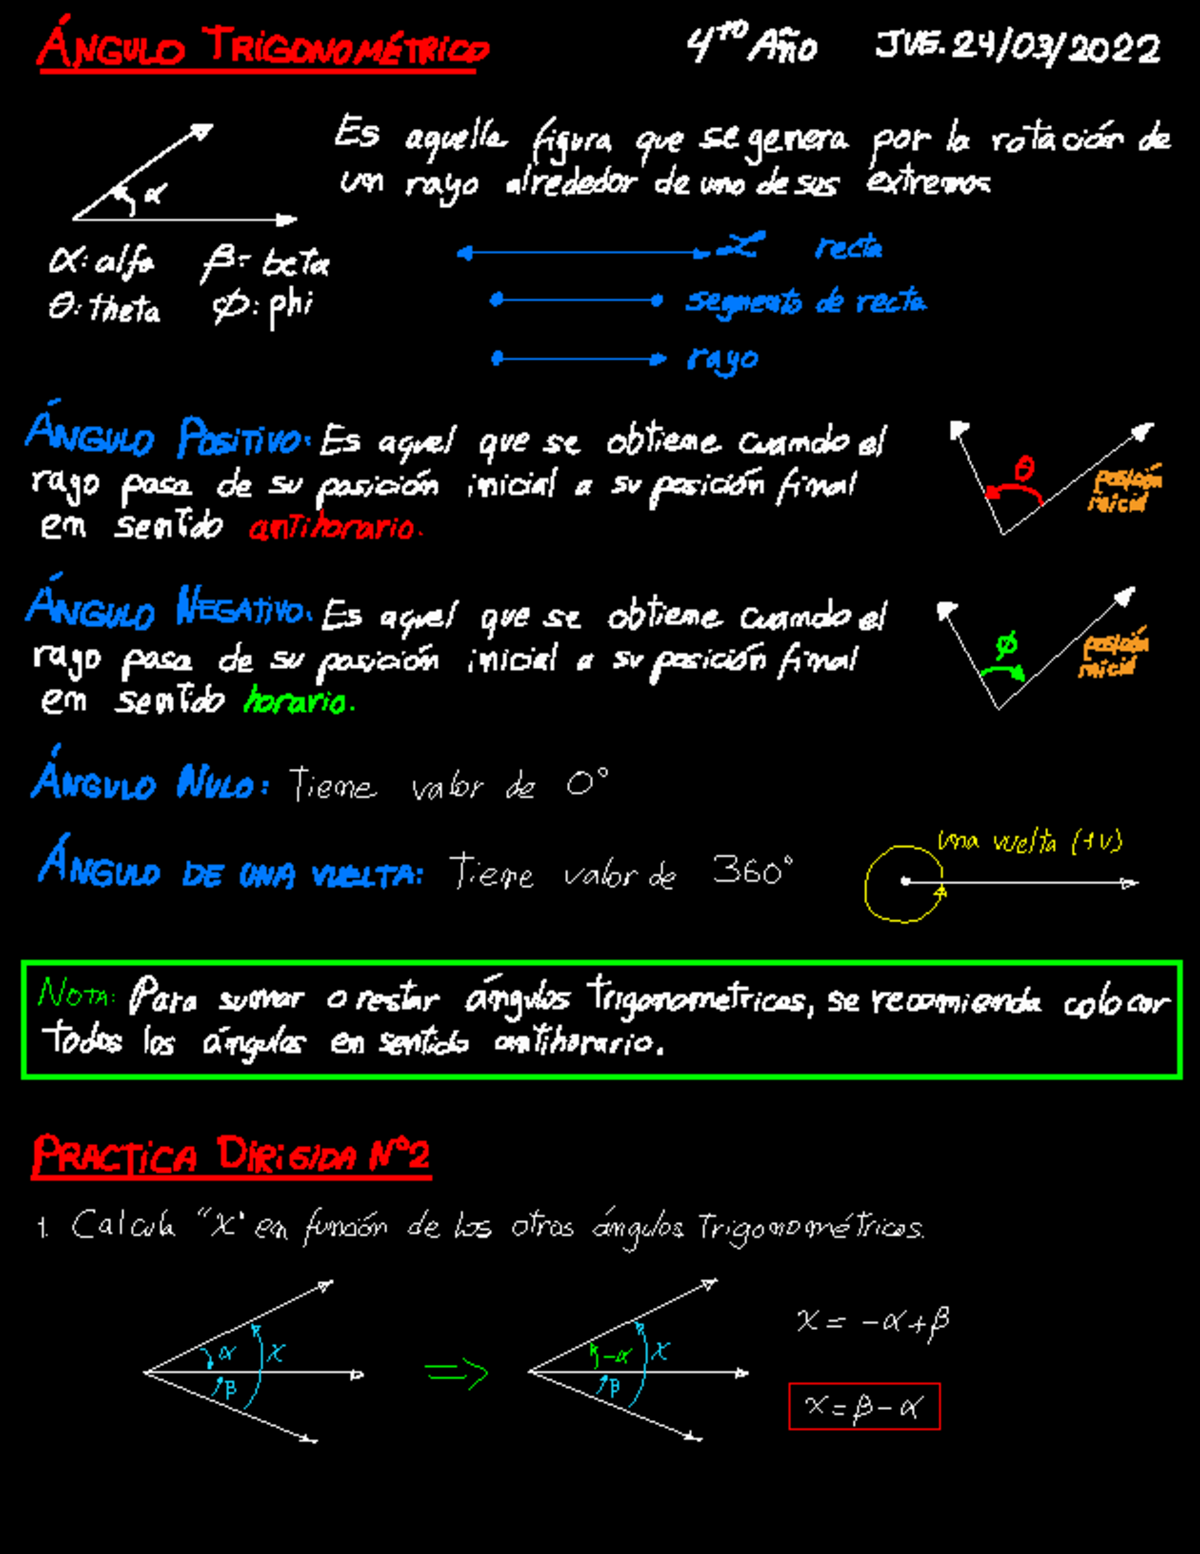 ÁNGULO TRIGONOMÉTRICO 4to Año JUE. 24/03/2022
Es aquella figura que se genera por la rotación de
un rayo alrededor de uno de sus extremos
α
α: alfa β= beta
θ: theta Φ: phi
L recta
segmento de recta
rayo
ÁNGULO POSITIVO: Es aquel que se obtiene cuando el
rayo pasa de su posición inicial a su posición final
en sentido antihorario.
θ
posición
inicial
ÁNGULO NEGATIVO: Es aquel que se obtiene cuando el
rayo pasa de su posición inicial a su posición final
en sentido horario.
Φ
posición
inicial
ÁNGULO NULO: Tiene valor de 0°
ÁNGULO DE UNA VUELTA: Tiene valor de 360°
una vuelta (1v)
NOTA: Para sumar o restar ángulos trigonometricos, se recomienda colocar
todos los ángulos en sentido antihorario.
PRACTICA DIRIGIDA N°2
1. Calcula "x" en función de los otros ángulos Trigonométricos.
α x
β
=>
-α x
β
x = -α+β
x = β - α